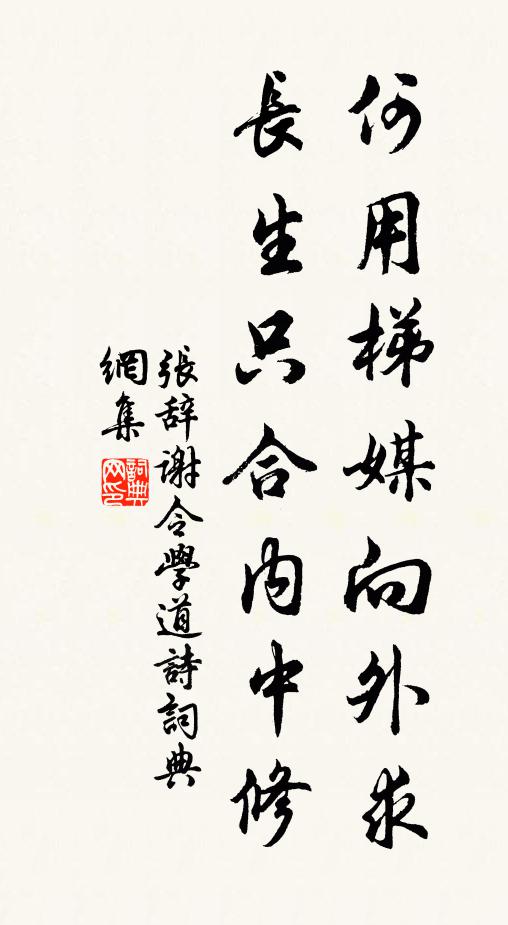 何用梯媒向外求
長生只合內中修
張辞謝令學道詩詞典
網集
詞典网印